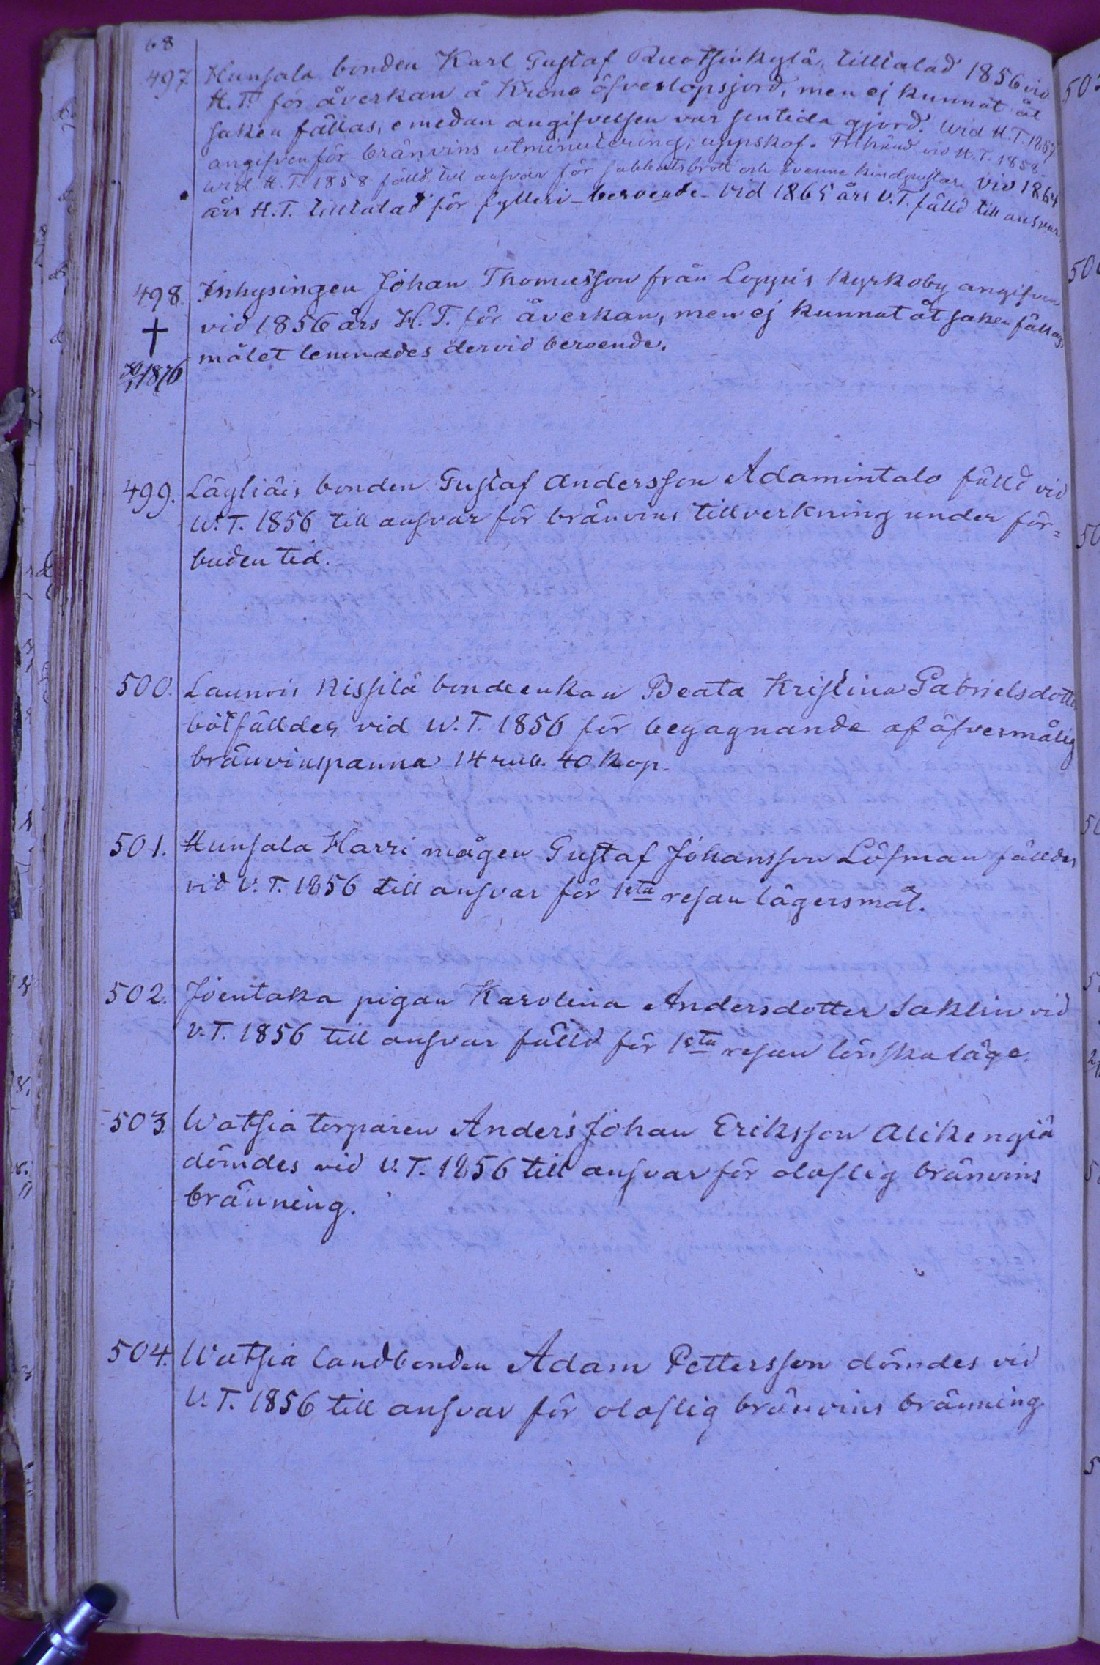 68
497 Hunsala bonden Karl Gustaf Ruotsinkylä, tilltalad 1856 vid
H.T. för åverkan å Krono öfverlopsjord, men ej kunnat åt
saken fällas, emedan angifvelsen var sentida gjord. Wid H.T. 1857
angifven för bränvins utminutering, uppskof. Frikänd vid H.T. 1858.
Wid H.T. 1858 fälld till ansvar för sabbatsbrott och tvenne kindpustar. Vid 1864
års H.T. tilltalad för fylleri - beroende - Vid 1865 års V.T. fälld till ansvar
498. Inhysingen Johan Thomasson från Loppis kyrkoby angifven
vid 1856 års H.T. för åverkan, men ej kunnat åt saken fällas,
målet lemnades dervid beroende.
1876
499. Läyliäis bonden Gustaf Andersson Adamintalo fälld vid
W.T. 1856 till ansvar för bränvins tillverkning under för=
buden tid.
500. Launois Nissilä bondeenkan Beata Kristina Gabrielsdotter
bötfälldes vid W.T. 1856 för begagnande af öfvermålig
bränvinspanna 14 rub. 40 kop.
501. Hunsala Harri mågen Gustaf Johansson Löfman fälldes
vid V.T. 1856 till ansvar för 1sta resan lägersmål.
502. Joentaka pigan Karolina Andersdotter Saklin vid
V.T. 1856 till ansvar fälld för 1sta resan lönskaläge.
503. Watsia torparen Anders Johan Eriksson Alikengiä
dömdes vid V.T. 1856 till ansvar för olaflig bränvins
bränning.
504. Watsia landbonden Adam Pettersson dömdes vid
V.T. 1856 till ansvar för olaflig bränvins bränning